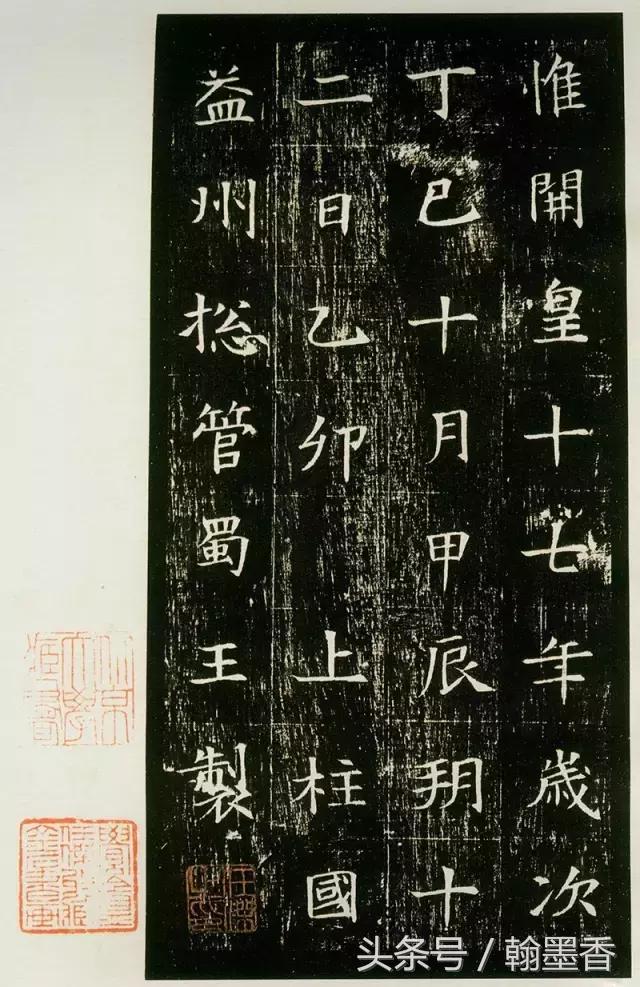 惟開皇十七年歲次
丁巳十月甲辰朔十
二日乙卯上柱國
益州捴管蜀王製
头条号 / 翰墨香